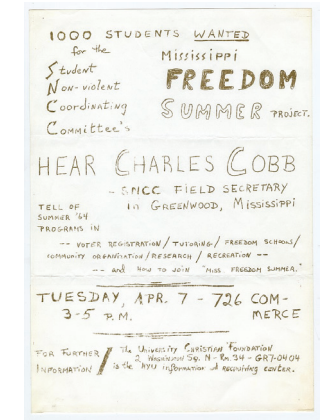 1000 STUDENTS WANTED
for the
Student
Non-violent
Coordinating
Committee's
Mississippi
FREEDOM
SUMMER PROJECT.
HEAR CHARLES COBB
- SNCC FIELD SECRETARY
in GREENWOOD, MISSISSIPPI
TELL OF
SUMMER '64
PROGRAMS IN
-- VOTER REGISTRATION / TUTORING / FREEDOM SCHOOLS /
COMMUNITY ORGANISATION / RESEARCH / RECREATION --
-- and HOW TO JOIN "MISS. FREEDOM SUMMER."
TUESDAY, APR. 7 - 726 COM-
3-5 P.M. MERCE
FOR FURTHER
INFORMATION /
The University Christian Foundation
2 WASHINGTON SQ. N - Rm. 34 - GR7-0404
is the NYU information & receiving center.